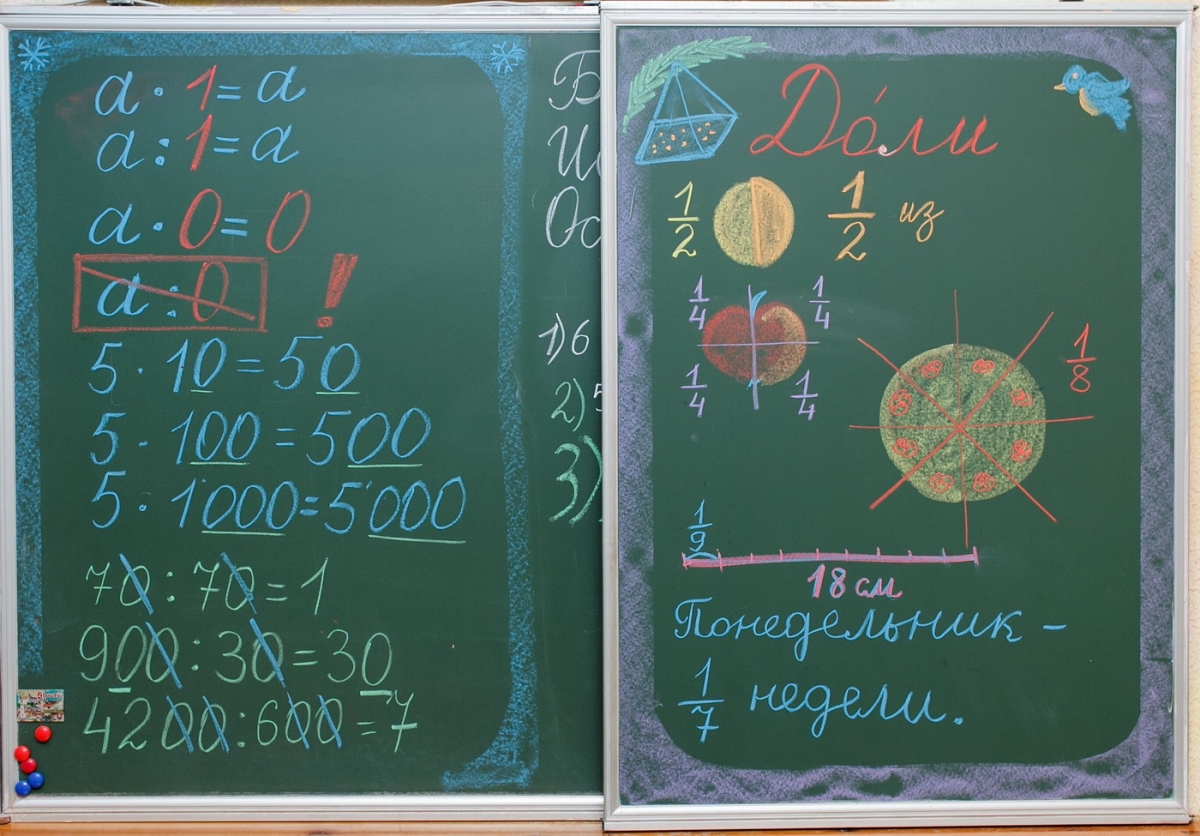 a · 1 = a
a : 1 = a
a · 0 = 0
a : 0 !
5 · 10 = 50
5 · 100 = 500
5 · 1000 = 5000
70 : 70 = 1
900 : 30 = 30
4200 : 600 = 7
1) 6
2)
3)
До́ли
1/2 1/2 из
1/4 1/4
1/4 1/4
1/8
1/9
18 см
Понедельник –
1/7 недели.